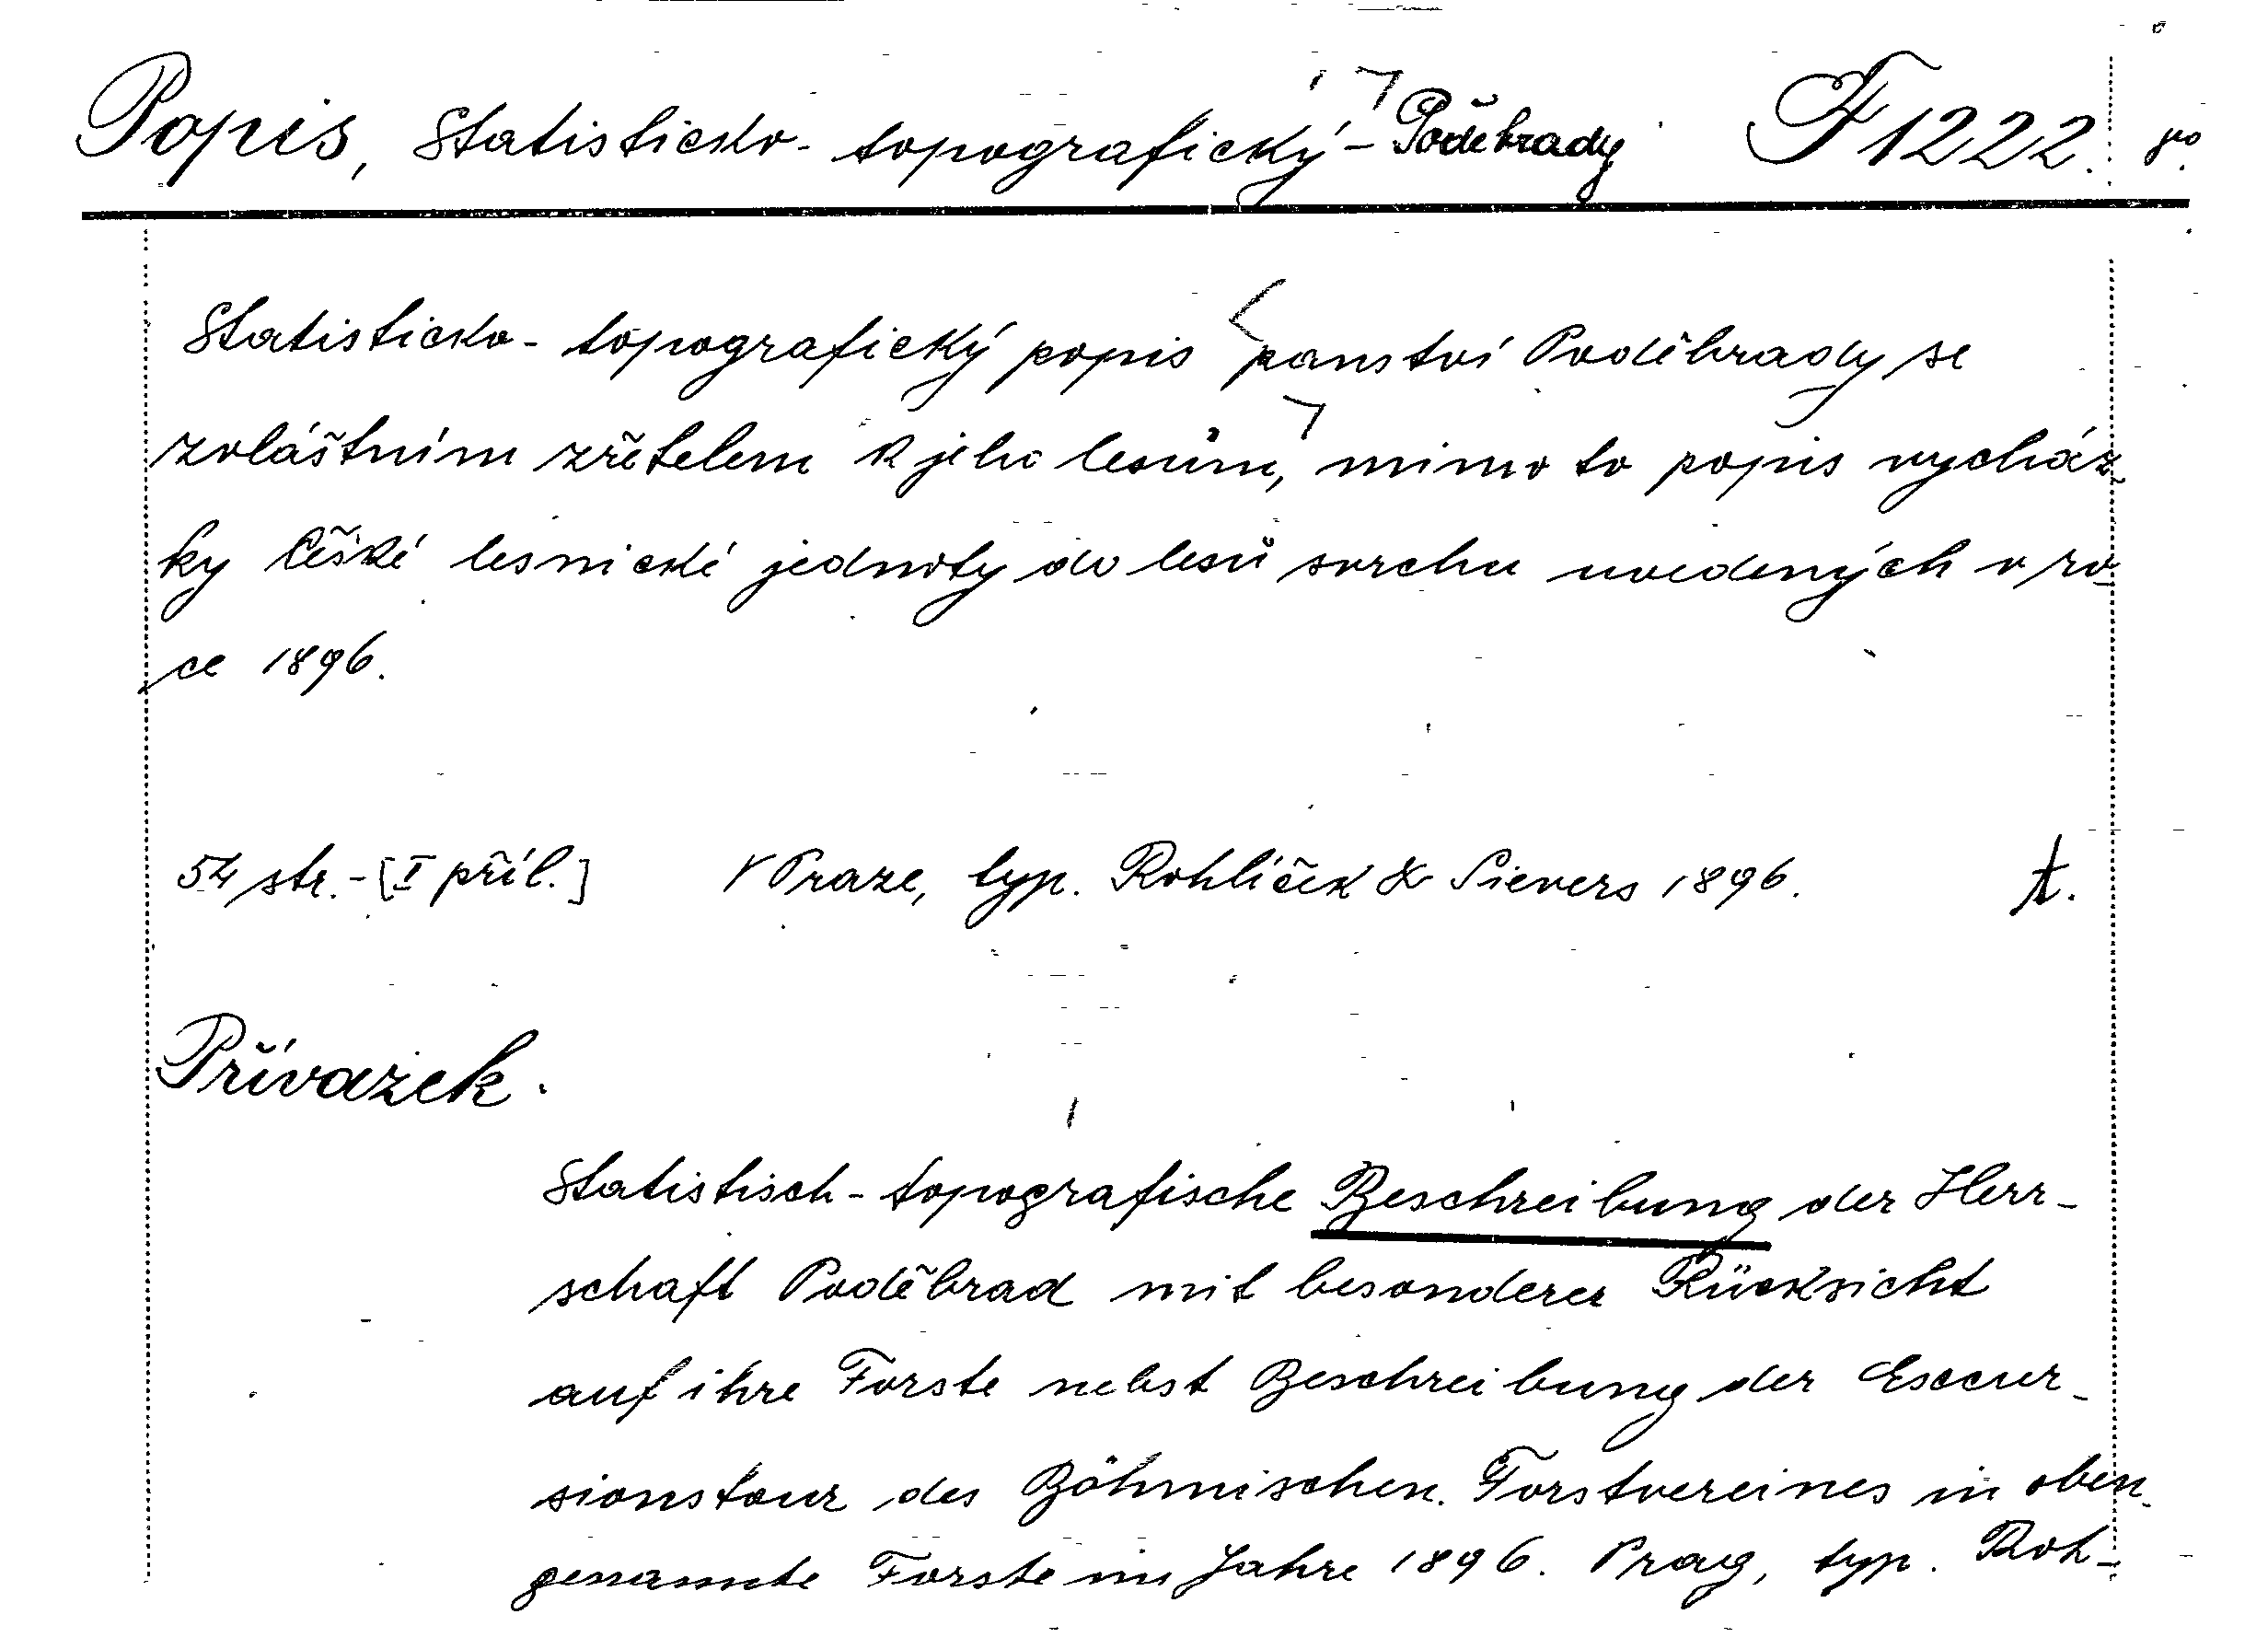 Popis, Statisticko-topografický – Poděbrady F 1222.
Statisticko-topografický popis panství Poděbrady se
zvláštním zřetelem k jeho lesům, mimo to popis vycház-
ky České lesnické jednoty do lesů svrchu uvedených v ro-
ce 1896.
54 str. – [I příl.] V Praze, typ. Rohlíček & Sievers 1896. t.
Přívazek.
Statistisch-topografische Beschreibung der Herr-
schaft Poděbrad mit besonderer Rücksicht
auf ihre Forste nebst Beschreibung der Excur-
sionstour des Böhmischen Forstvereines in oben-
genannte Forste im Jahre 1896. Prag, typ. Roh-